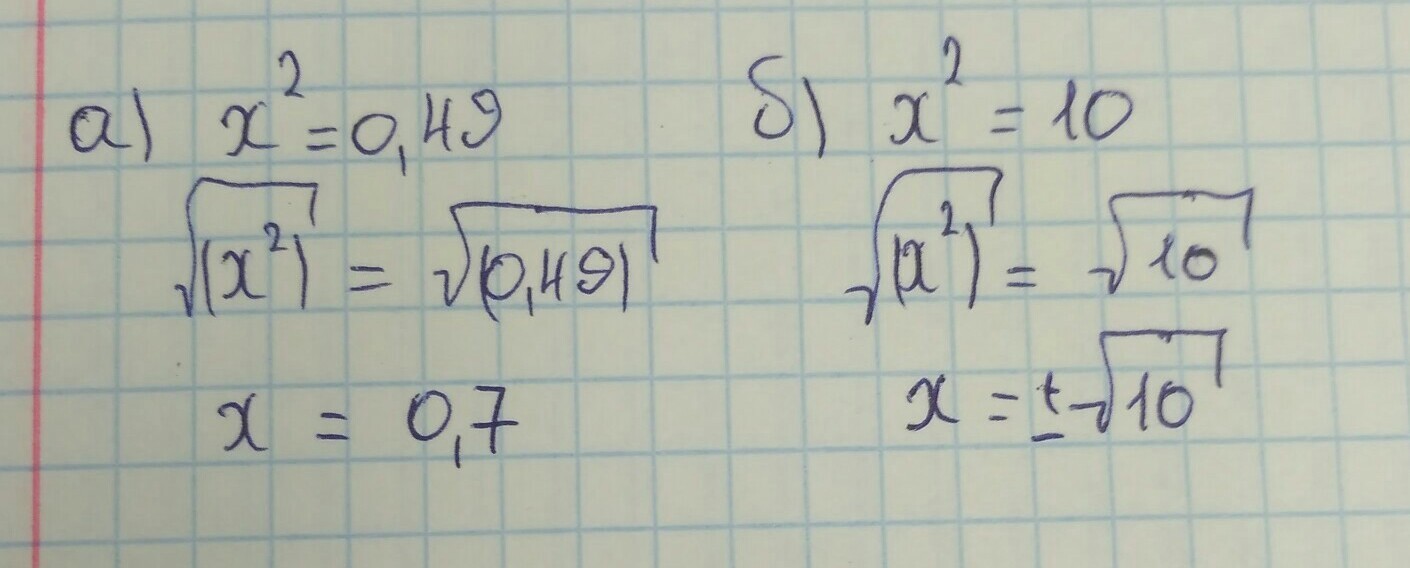 а) x² = 0,49
√(x²) = √(0,49)
x = 0,7
б) x² = 10
√(x²) = √10
x = ±√10